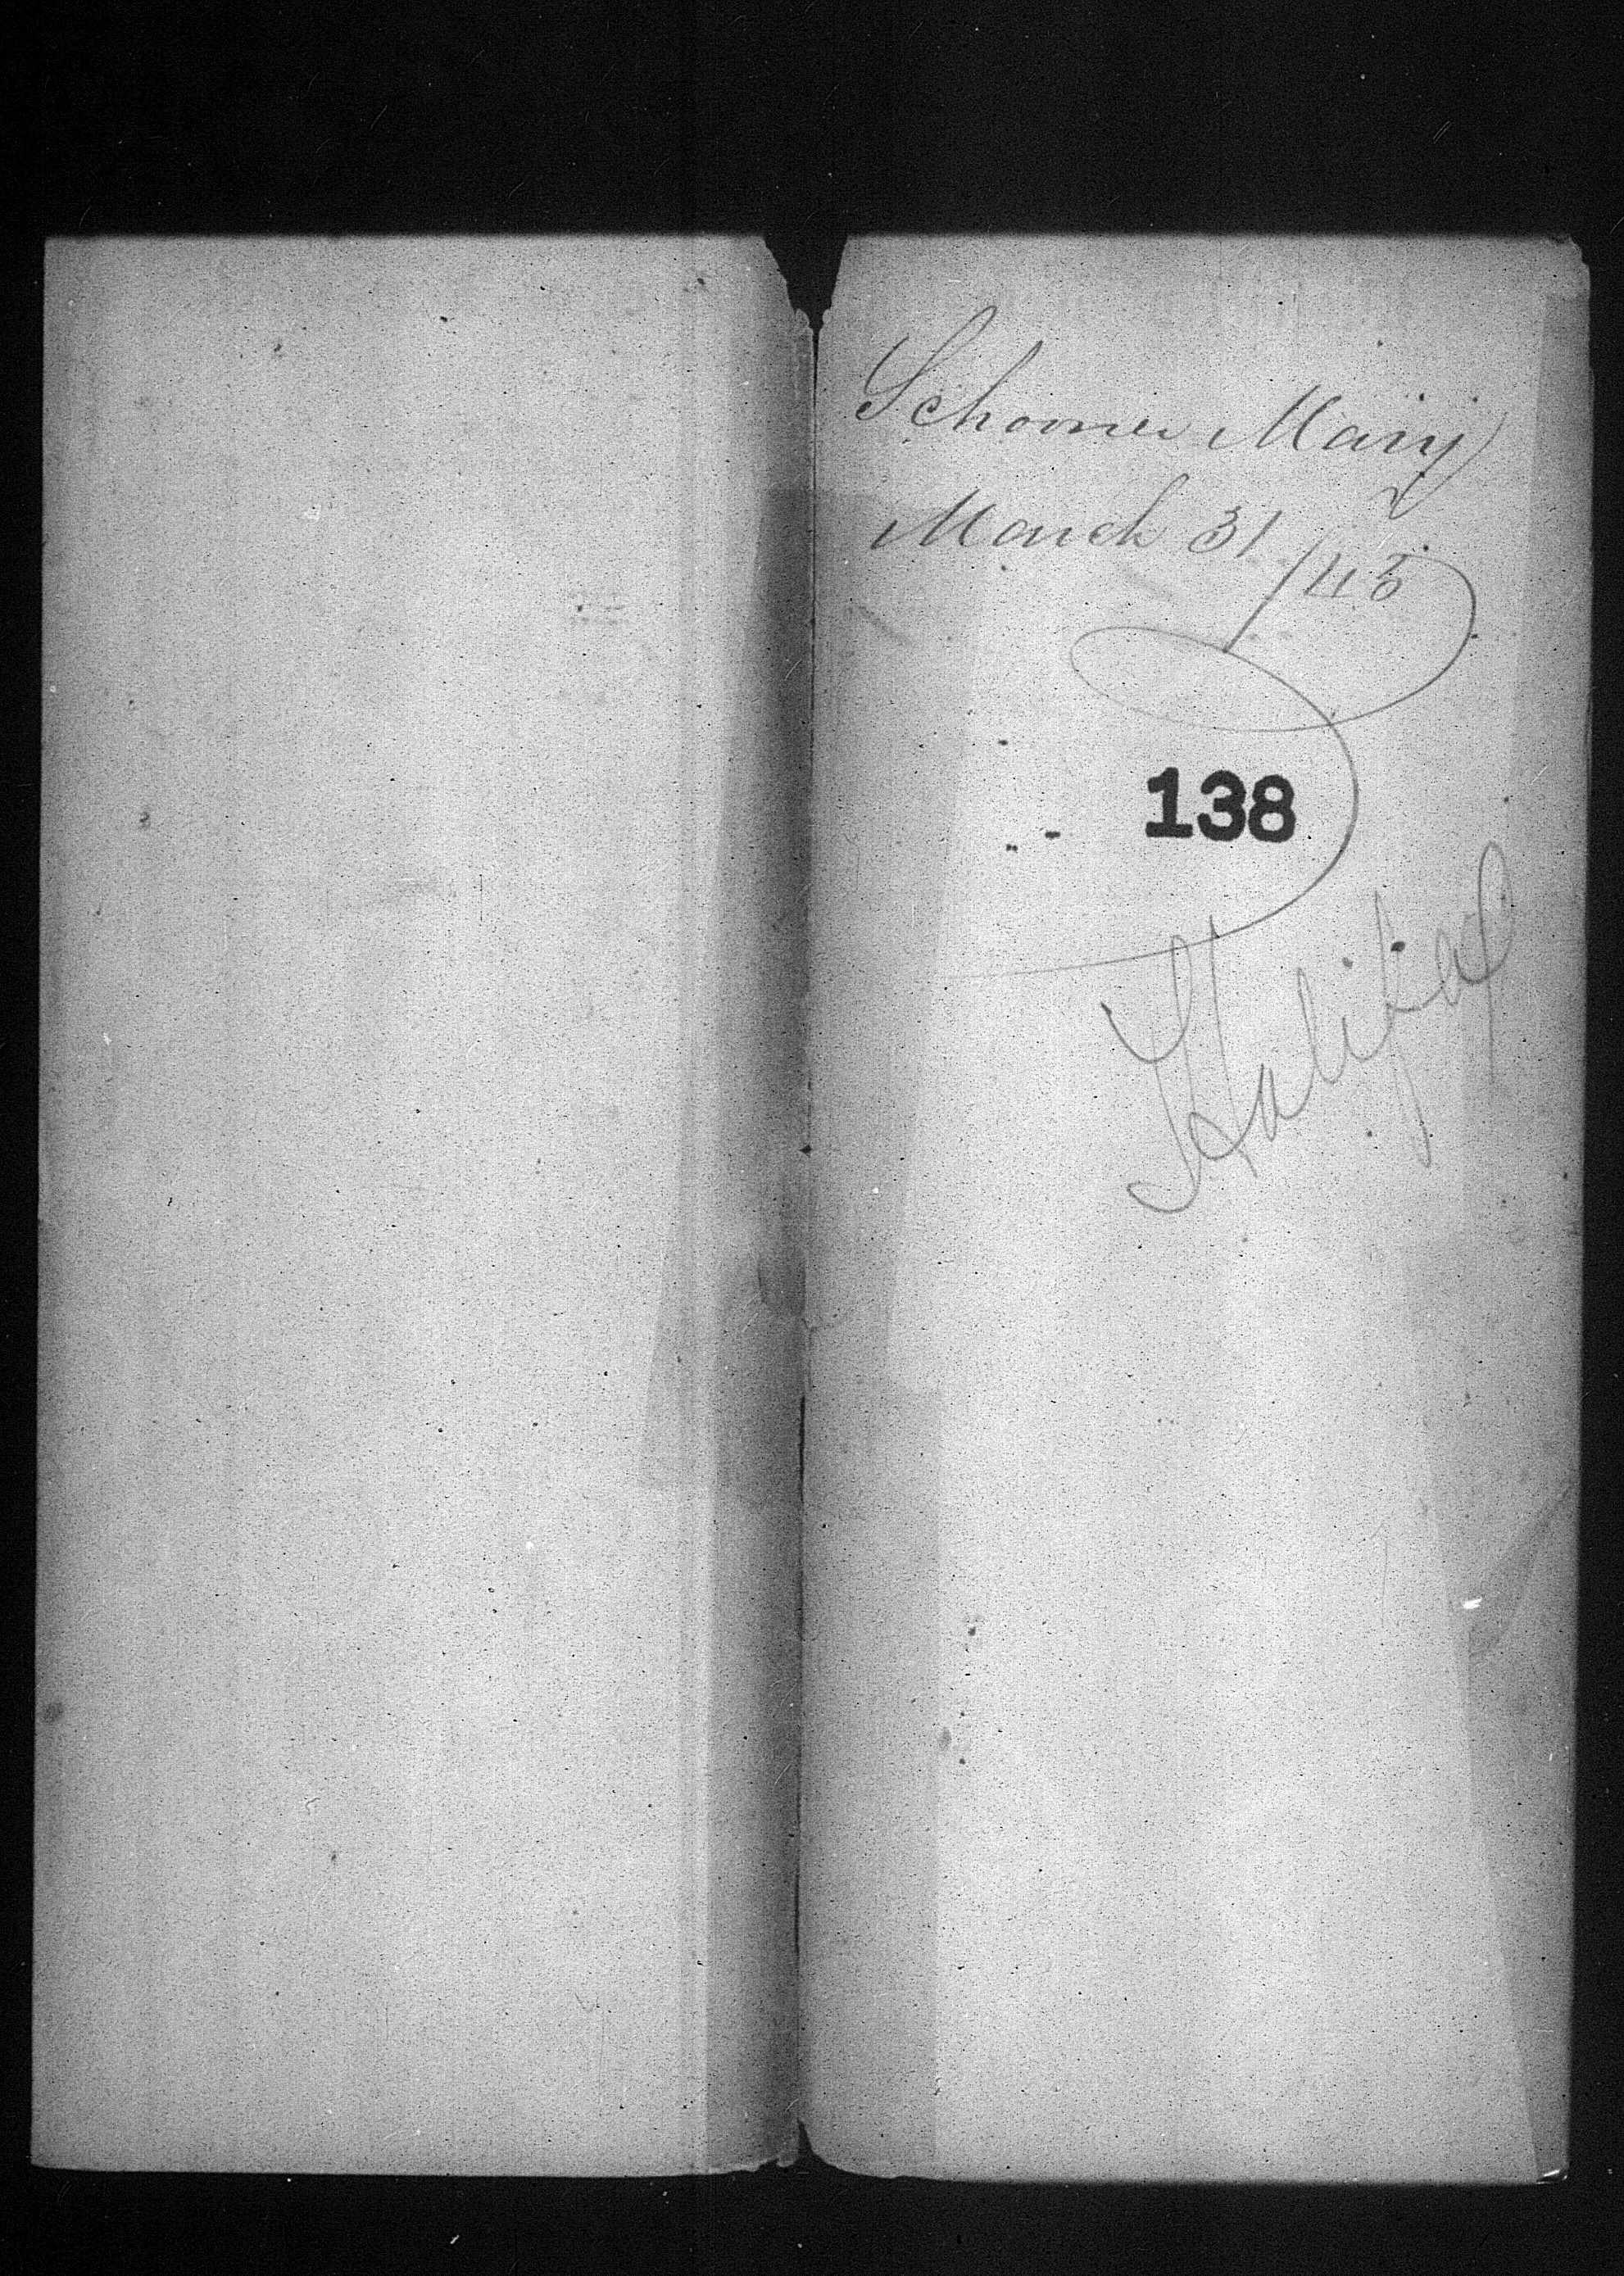 Schooner Mary
March 31
/43
138
Halifax